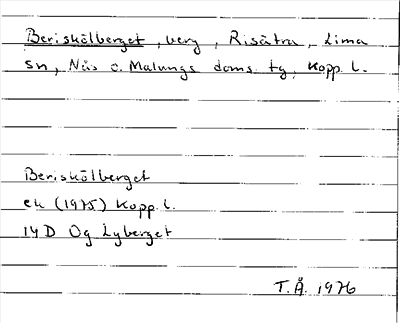 Beriskölberget, berg, Risätra, Lima
sn, Nås o. Malungs doms. tg, Kopp. l.
Beriskölberget
ek (1975) Kopp. l.
14D Og Lyberget
T.Å. 1976